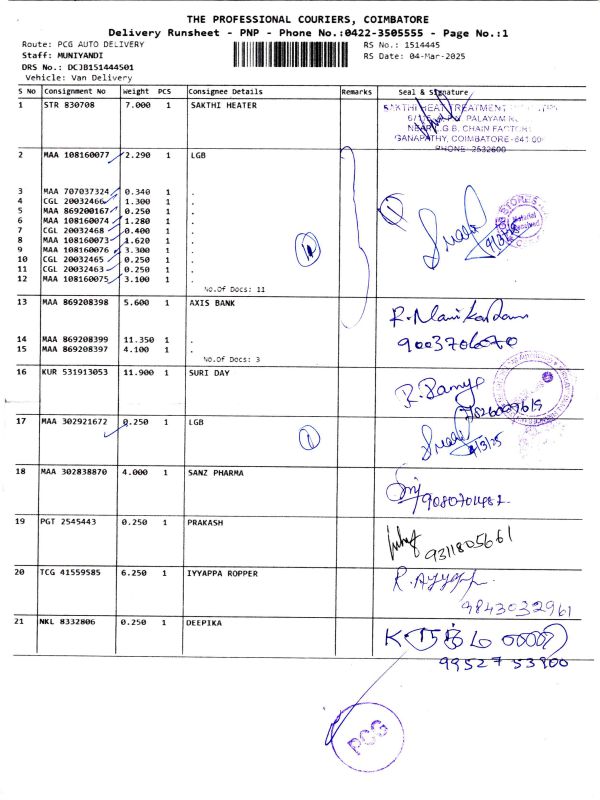 THE PROFESSIONAL COURIERS, COIMBATORE
Delivery Runsheet - PNP - Phone No.:0422-3505555 - Page No.:1
Route: PCG AUTO DELIVERY
RS No.: 1514445
Staff: MUNIYANDI
RS Date: 04-Mar-2025
DRS No.: DCJB151444501
Vehicle: Van Delivery
S No Consignment No Weight PCS Consignee Details Remarks Seal & Signature
1 STR 830708 7.000 1 SAKTHI HEATER
SAKTHI HEAT TREATMENT
PALAYAM
NEAR G.B. CHAIN FACTORY
GANAPATHY, COIMBATORE-641 00
PHONE 2532600
2 MAA 108160077 2.290 1 LGB
3 MAA 707037324 0.340 1 .
4 CGL 20032466 1.300 1 .
5 MAA 869200167 0.250 1 .
6 MAA 108160074 1.280 1 .
7 CGL 20032468 0.400 1 .
8 MAA 108160073 1.620 1 .
9 MAA 108160076 3.300 1 .
10 CGL 20032465 0.250 1 .
11 CGL 20032463 0.250 1 .
12 MAA 108160075 3.100 1 .
No.Of Docs: 11
STORES
Material Received
13 MAA 869208398 5.600 1 AXIS BANK
R. Manikandan
9003706070
14 MAA 869208399 11.350 1 .
15 MAA 869208397 4.100 1 .
No.Of Docs: 3
16 KUR 531913053 11.900 1 SURI DAY
17 MAA 302921672 0.250 1 LGB
18 MAA 302838870 4.000 1 SANZ PHARMA
19 PGT 2545443 0.250 1 PRAKASH
9311805661
20 TCG 41559585 6.250 1 IYYAPPA ROPPER
9843032961
21 NKL 8332806 0.250 1 DEEPIKA
99527 53900
PCG